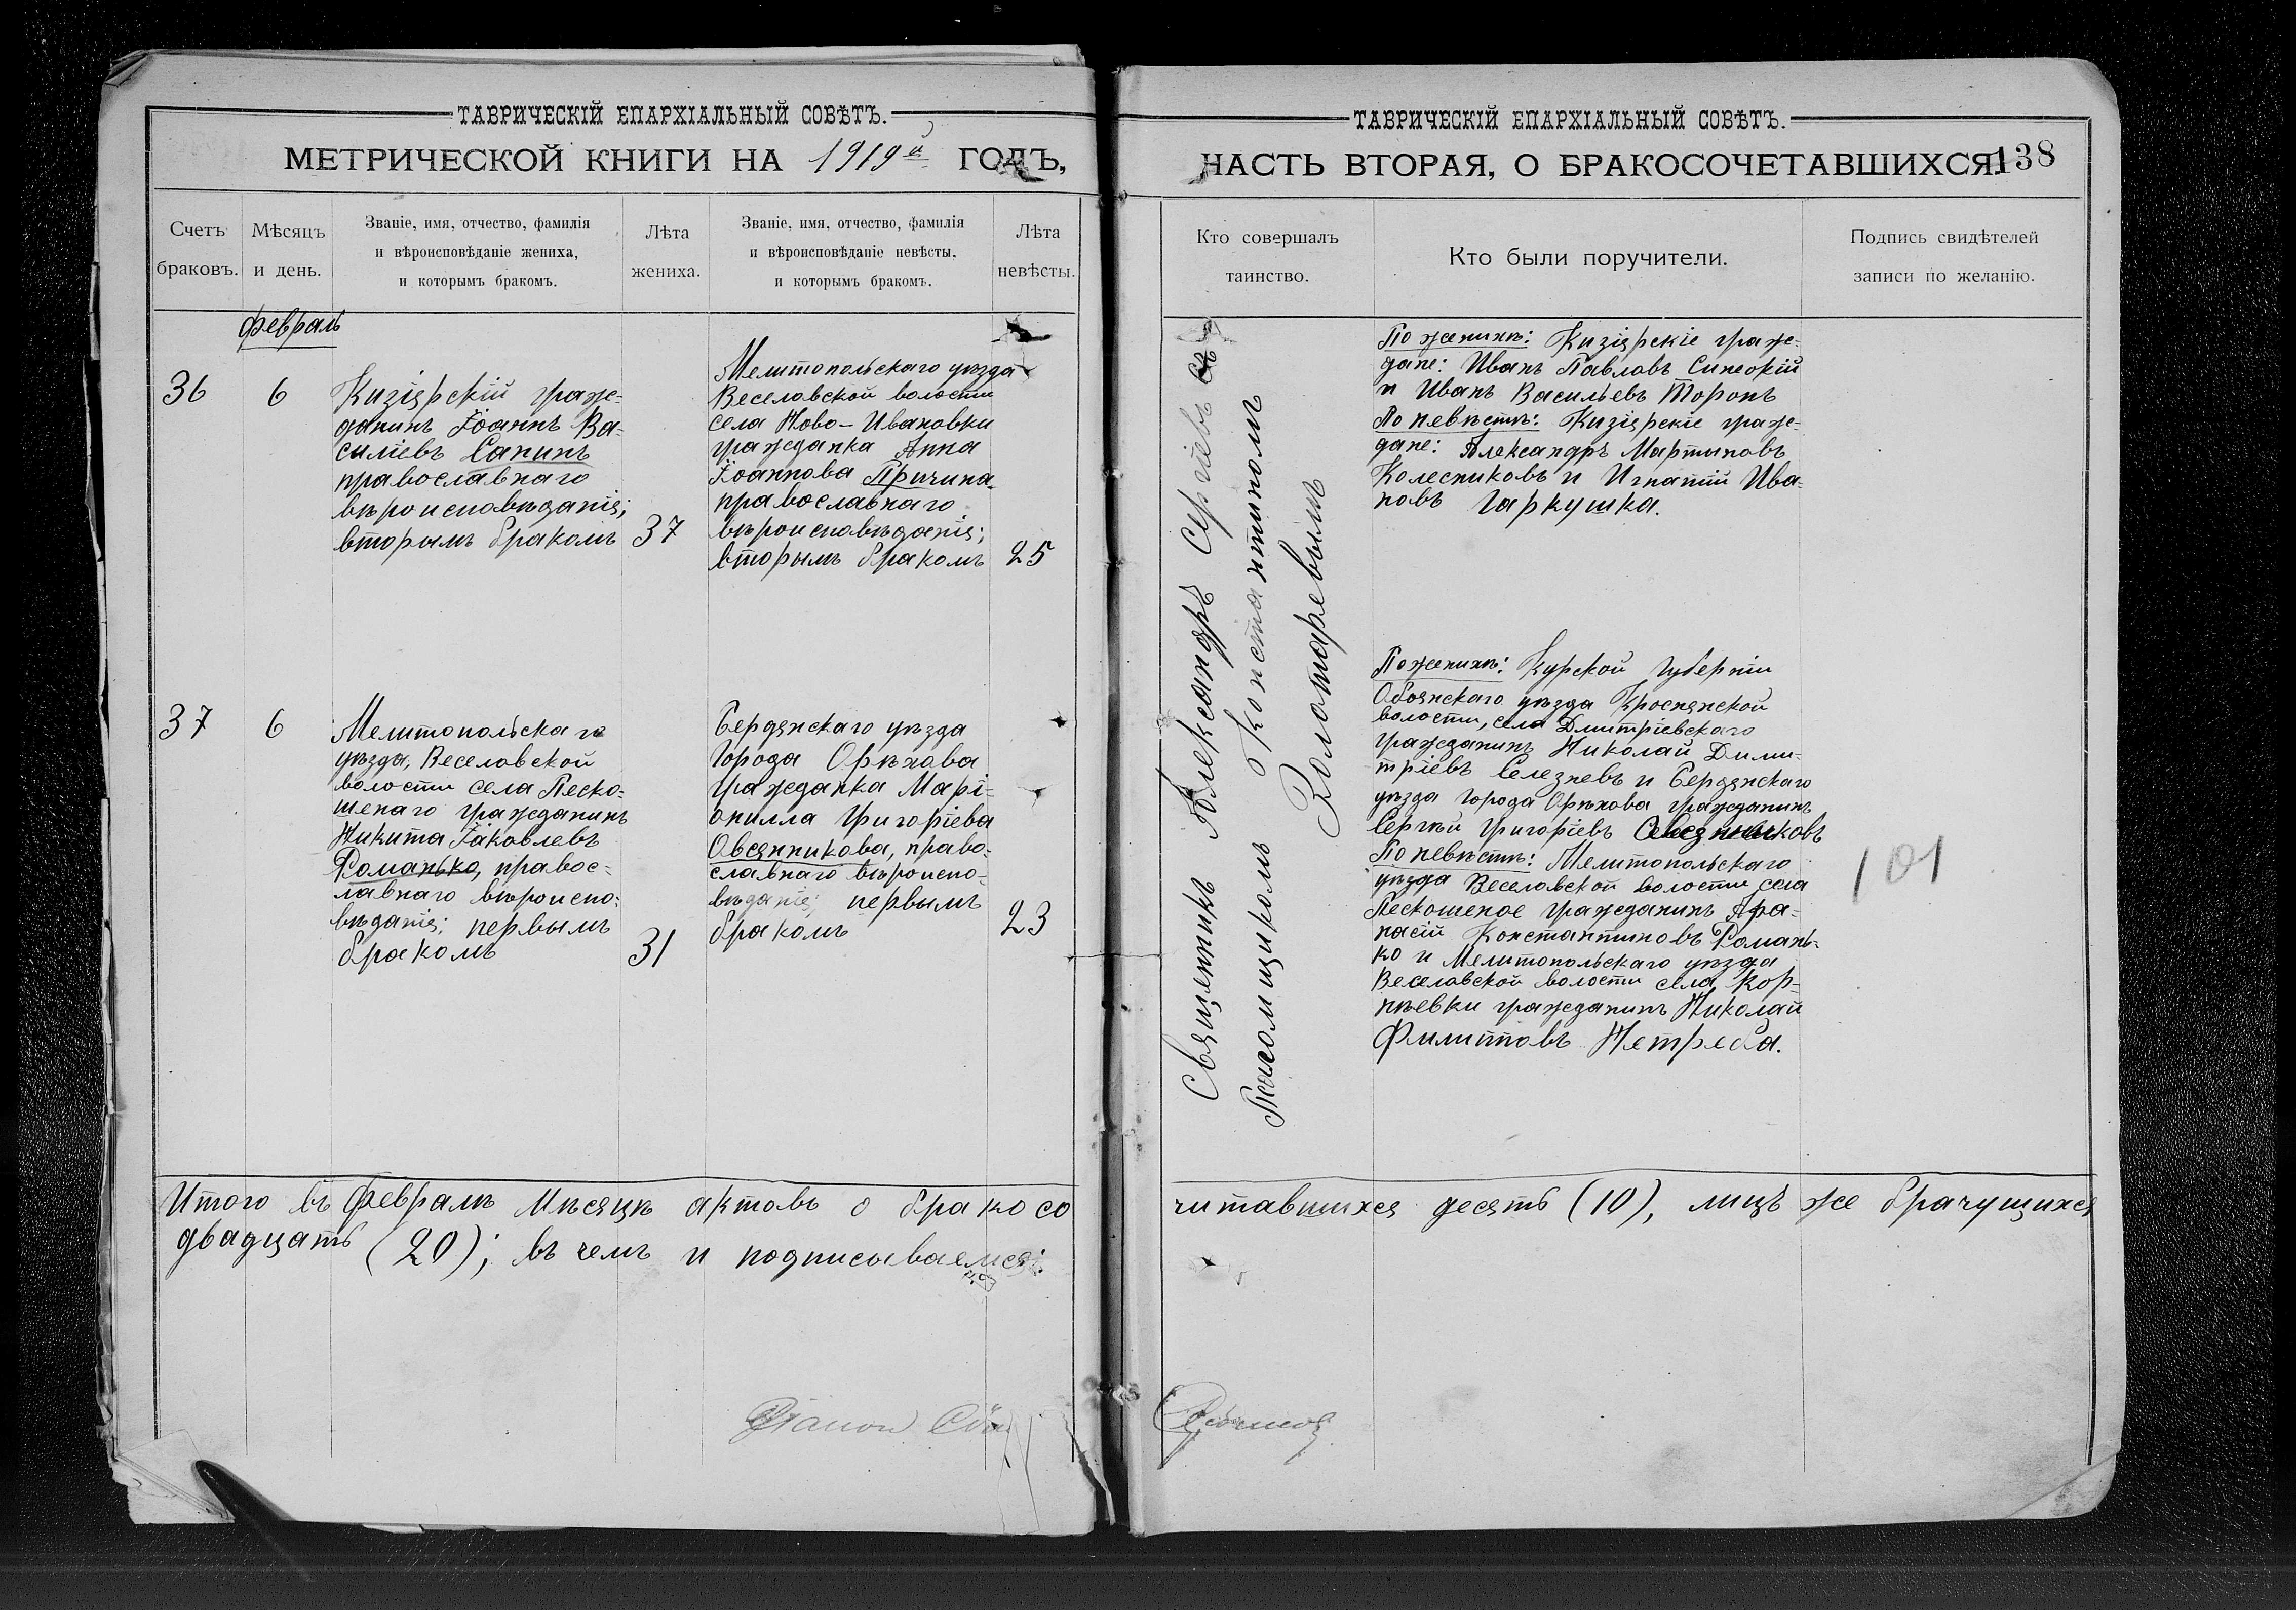 ТАВРИЧЕСКІЙ ЕПАРХІАЛЬНЫЙ СОВѢТЪ.
МЕТРИЧЕСКОЙ КНИГИ НА 1919й ГОДЪ,
Счетъ браковъ.
Мѣсяцъ и день.
Званіе, имя, отчество, фамилія
и вѣроисповѣданіе жениха,
и которымъ бракомъ.
Лѣта жениха.
Званіе, имя, отчество, фамилія
и вѣроисповѣданіе невѣсты,
и которымъ бракомъ.
Лѣта невѣсты.
Февраль
36
6
Кизіярскій граж=
данинъ Іоаннъ Ва=
силіевъ Сапинъ
православнаго
вѣроисповѣданія;
вторымъ бракомъ
37
Мелитопольскаго уѣзда
Веселовской волости
села Ново-Ивановки
гражданка Анна
Іоаннова Причина
православнаго
вѣроисповѣданія;
вторымъ бракомъ
25
37
6
Мелитопольскаго
уѣзда, Веселовской
волости села Песко=
шенаго гражданинъ
Никита Іаковлевъ
Романько, правос=
лавнаго вѣроиспо=
вѣданія; первымъ
бракомъ
31
Бердянскаго уѣзда
города Орѣхова
гражданка Марі=
онилла Григоріева
Овсянникова, право=
славнаго вѣроиспо=
вѣданія; первымъ
бракомъ
23
Итого въ Февралѣ мѣсяцѣ актовъ о бракосо
двадцать (20); въ чемъ и подписываемся:
ТАВРИЧЕСКІЙ ЕПАРХІАЛЬНЫЙ СОВѢТЪ.
ЧАСТЬ ВТОРАЯ, О БРАКОСОЧЕТАВШИХСЯ.
138
Кто совершалъ
таинство.
Кто были поручители.
Подпись свидѣтелей
записи по желанію.
Священникъ Александръ Сергіевъ съ
Псаломщикомъ Константиномъ
Золотаревымъ
По женихѣ: Кизіярскіе граж=
дане: Иванъ Павловъ Синеокій
и Иванъ Васильевъ Торонъ
По невѣстѣ: Кизіярскіе граж=
дане: Александръ Мартыновъ
Колесниковъ и Игнатій Ива=
новъ Гаркушка.
По женихѣ: Курской губерніи
Обоянскаго уѣзда Кроснянской
волости, села Дмитріевскаго
гражданинъ Николай Дими=
тріевъ Селезневъ и Бердянскаго
уѣзда города Орѣхова гражданинъ
Сергѣй Григоріевъ
По невѣстѣ: Мелитопольскаго
уѣзда Веселовской волости села
Пескошеное гражданинъ Афа=
насій Константиновъ Романь=
ко и Мелитопольскаго уѣзда
Веселовской волости села Кор=
нѣевки гражданинъ Николай
Филипповъ Нетреба.
101
читавшихся десять (10), лицъ же брачущихся